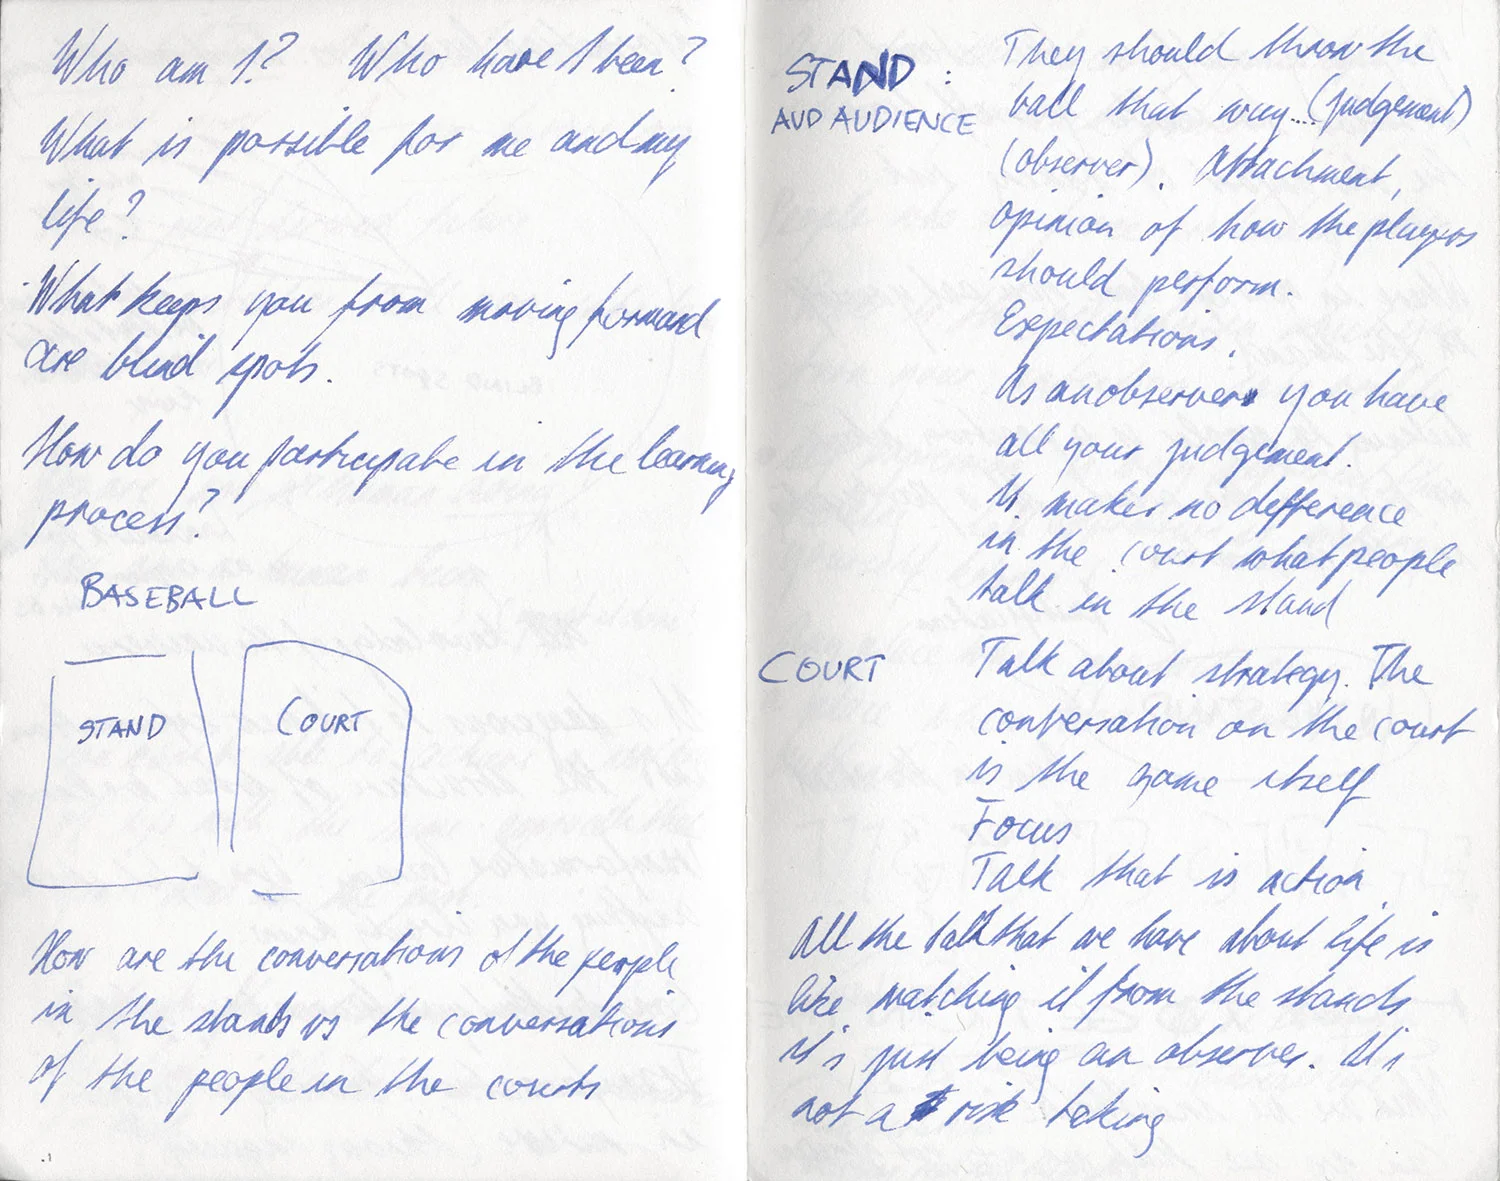 Who am I? Who have I been?
What is possible for me and my
life?
What keeps you from moving forward
are blind spots.
How do you participate in the learning
process?
BASEBALL
STAND
COURT
How are the conversations of the people
in the stands vs the conversations
of the people in the courts
STAND :
AUD AUDIENCE
They should throw the
ball that way... (judgement)
(observer). Attachment,
opinion of how the players
should perform.
Expectations.
As an observer you have
all your judgement.
It makes no difference
in the court what people
talk in the stand
COURT
Talk about strategy. The
conversation on the court
is the game itself
Focus
Talk that is action
All the talk that we have about life is
like watching it from the stands
it's just being an observer. It's
not a risk taking